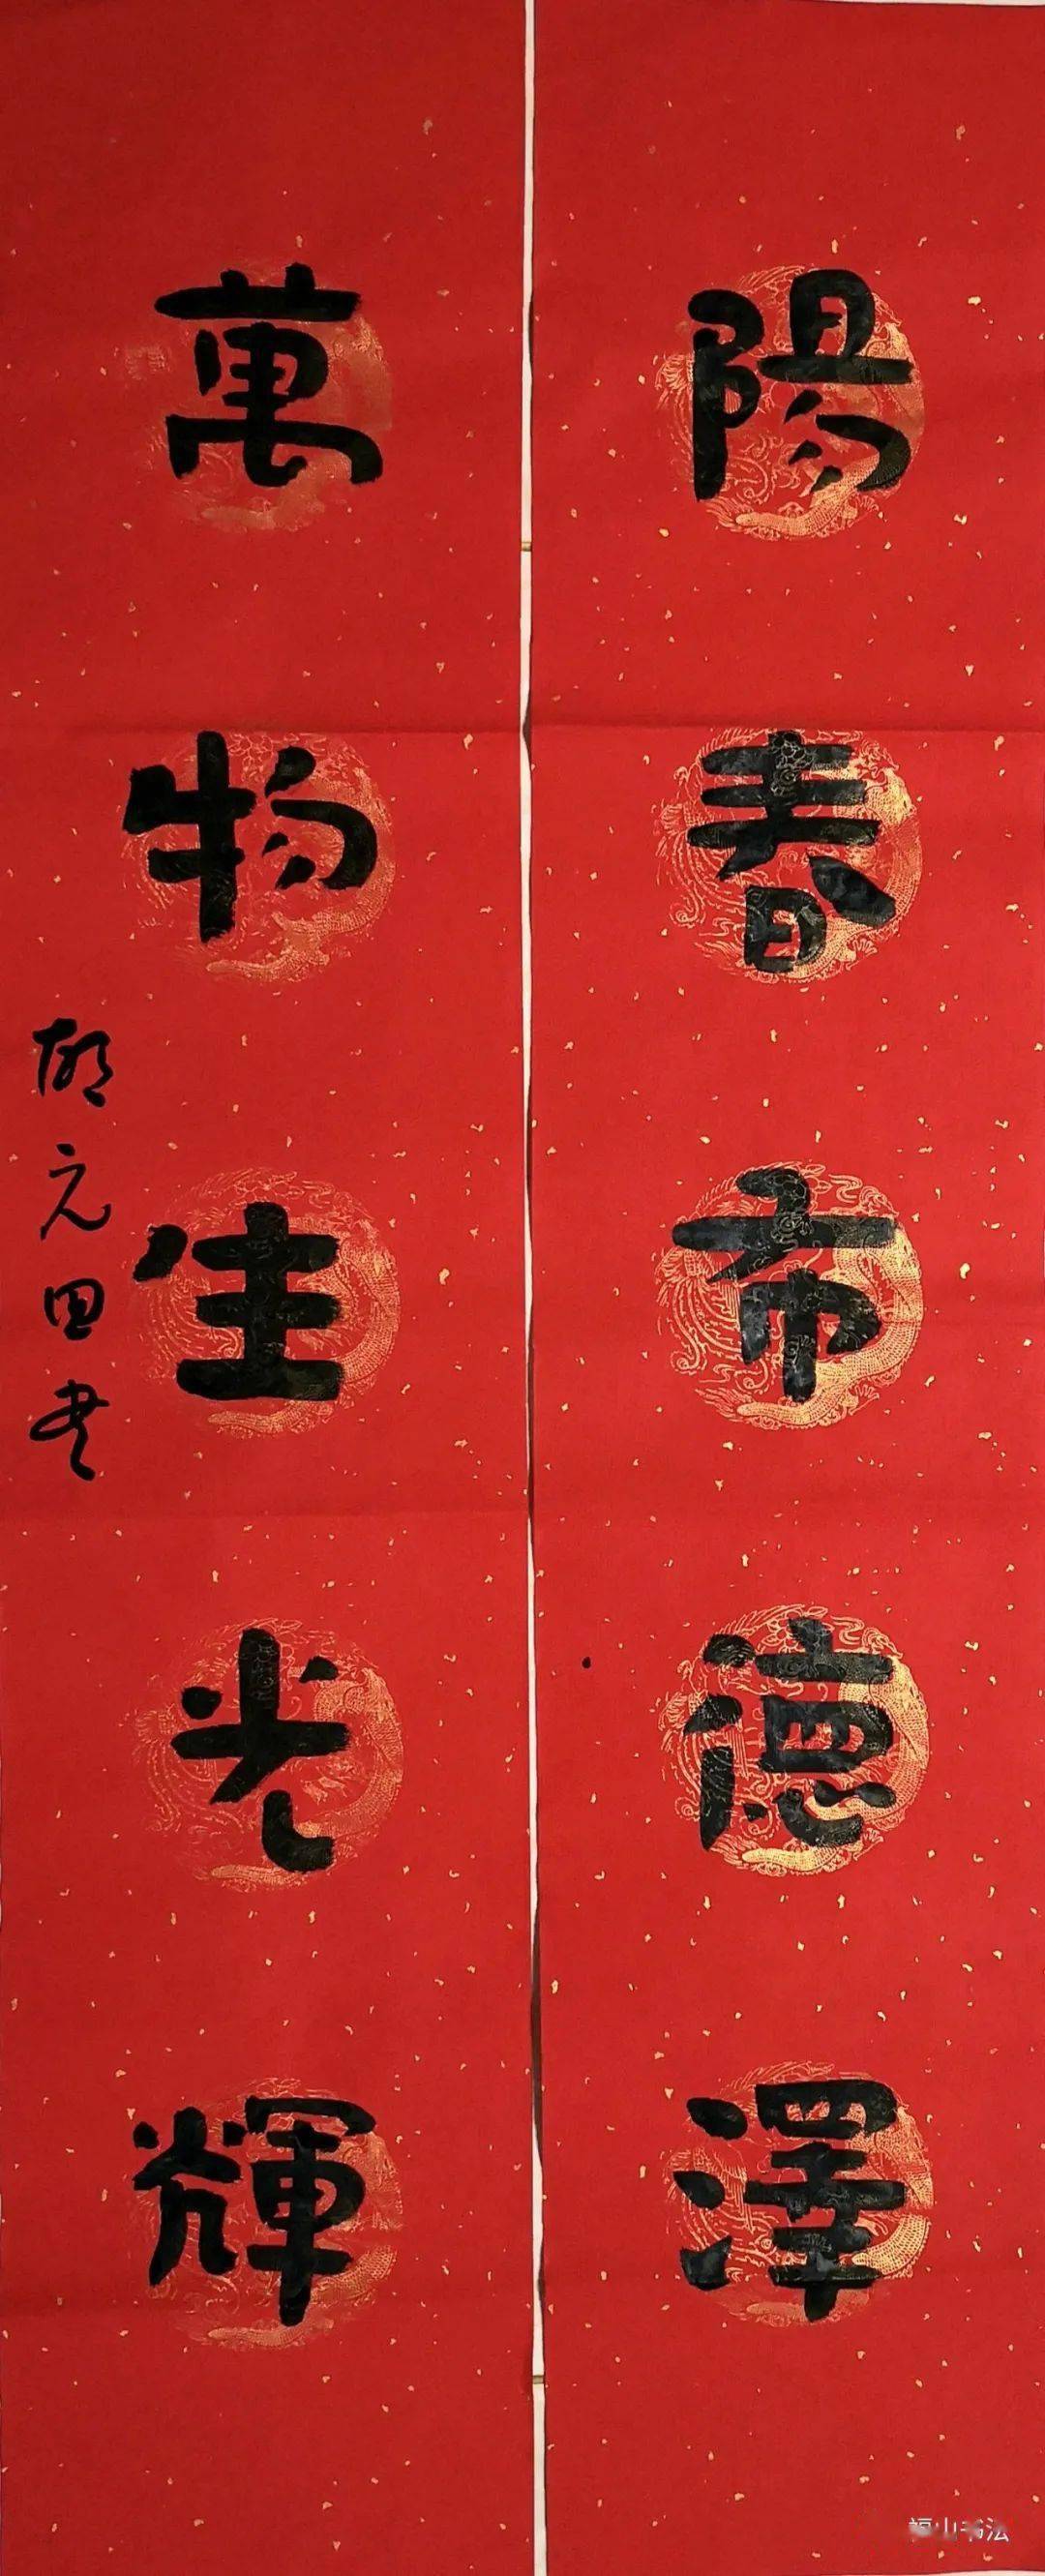 陽春布德澤
萬物生光輝
胡元田書
福山书法